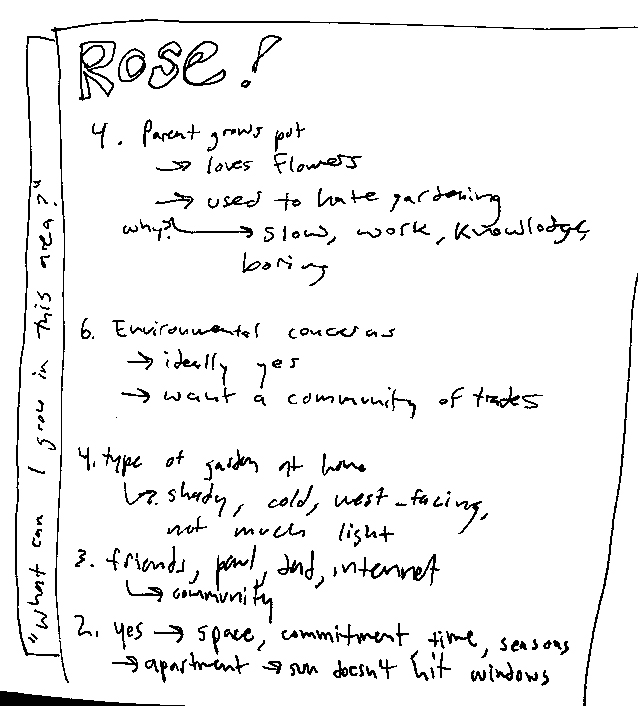 Rose!
4. Parent grows pot
→ loves flowers
→ used to hate gardening
why? → slow, work, knowledge,
boring
6. Environmental concerns
→ ideally yes
→ want a community of trades
4. type of garden at home
↳ shady, cold, west-facing,
not much light
3. friends, dad, internet
↳ community
2. yes → space, commitment, time, seasons
→ apartment → sun doesn't hit windows
"What can I grow in this area?"